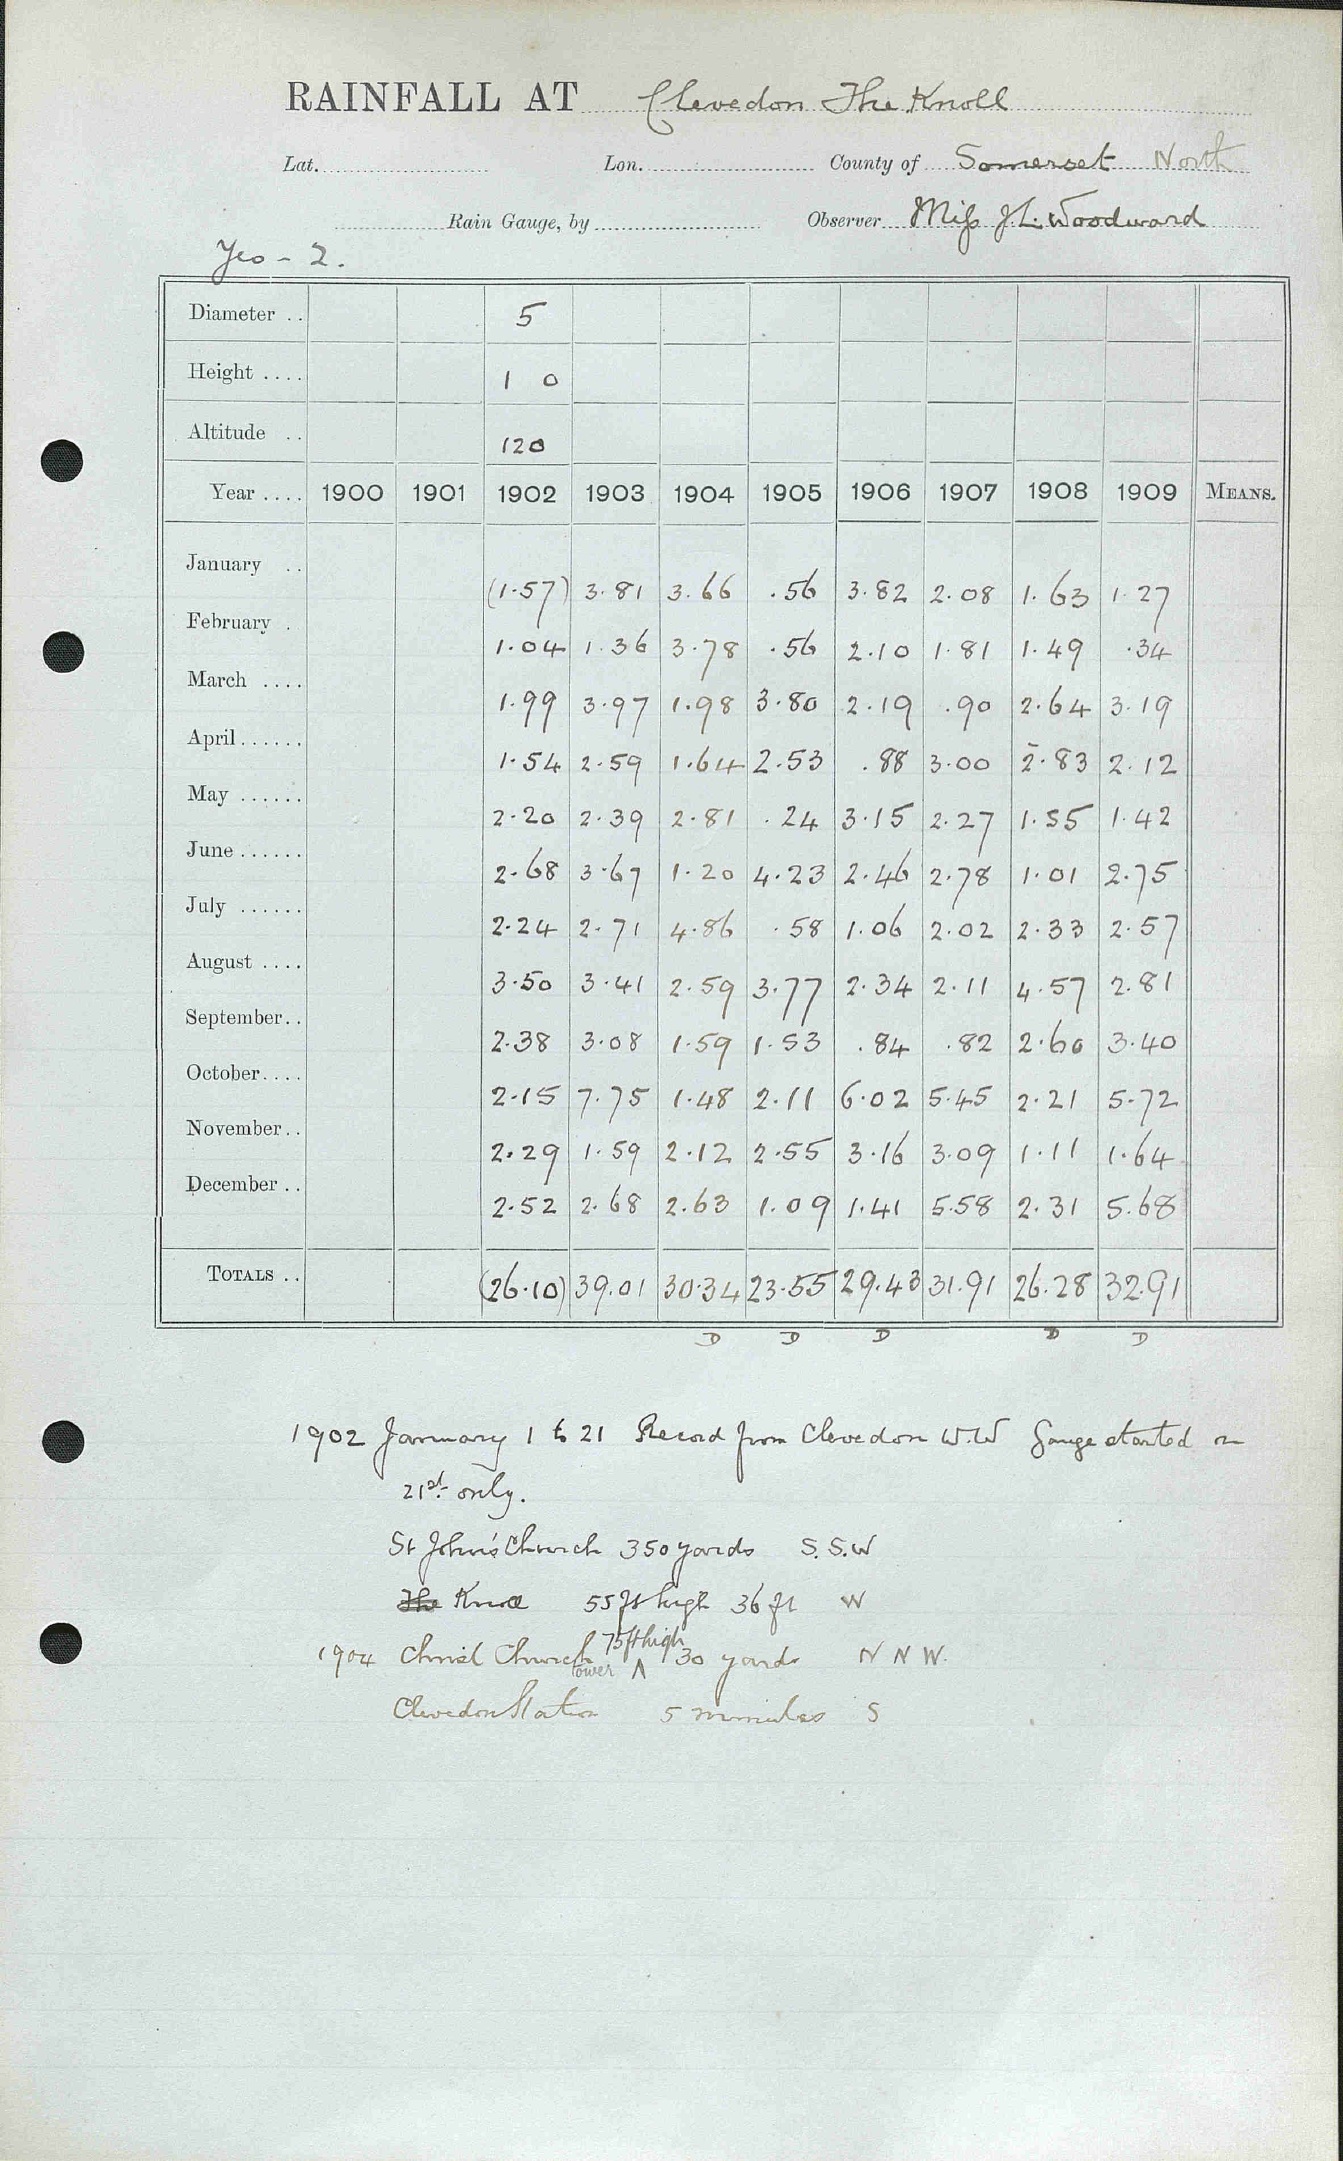 RAINFALL AT Clevedon The Knoll
Lat. Lon. County of Somerset North
Rain Gauge, by Observer Miss J.L. Woodward
Yeo - 2.
Diameter .. 5
Height .... 1 0
Altitude .. 120
Year .... 1900 1901 1902 1903 1904 1905 1906 1907 1908 1909 MEANS.
January .. (1.57) 3.81 3.66 .56 3.82 2.08 1.63 1.27
February . 1.04 1.36 3.78 .56 2.10 1.81 1.49 .34
March .... 1.99 3.97 1.98 3.80 2.19 .90 2.64 3.19
April...... 1.54 2.59 1.64 2.53 .88 3.00 2.83 2.12
May ...... 2.20 2.39 2.81 .24 3.15 2.27 1.55 1.42
June...... 2.68 3.67 1.20 4.23 2.46 2.78 1.01 2.75
July ...... 2.24 2.71 4.86 .58 1.06 2.02 2.33 2.57
August .... 3.50 3.41 2.59 3.77 2.34 2.11 4.57 2.81
September.. 2.38 3.08 1.59 1.53 .84 .82 2.60 3.40
October.... 2.15 7.75 1.48 2.11 6.02 5.45 2.21 5.72
November.. 2.29 1.59 2.12 2.55 3.16 3.09 1.11 1.64
December .. 2.52 2.68 2.63 1.09 1.41 5.58 2.31 5.68
TOTALS .. (26.10) 39.01 30.34 23.55 29.43 31.91 26.28 32.91
D D D D D
1902 January 1 to 21 Record from Clevedon W.W Gauge started on
21st only.
St John's Church 350 yards S.S.W
The Knoll 55 ft high 36 ft W
1904 Christ Church tower 75 ft high 30 yards N N W.
Clevedon Station 5 minutes S